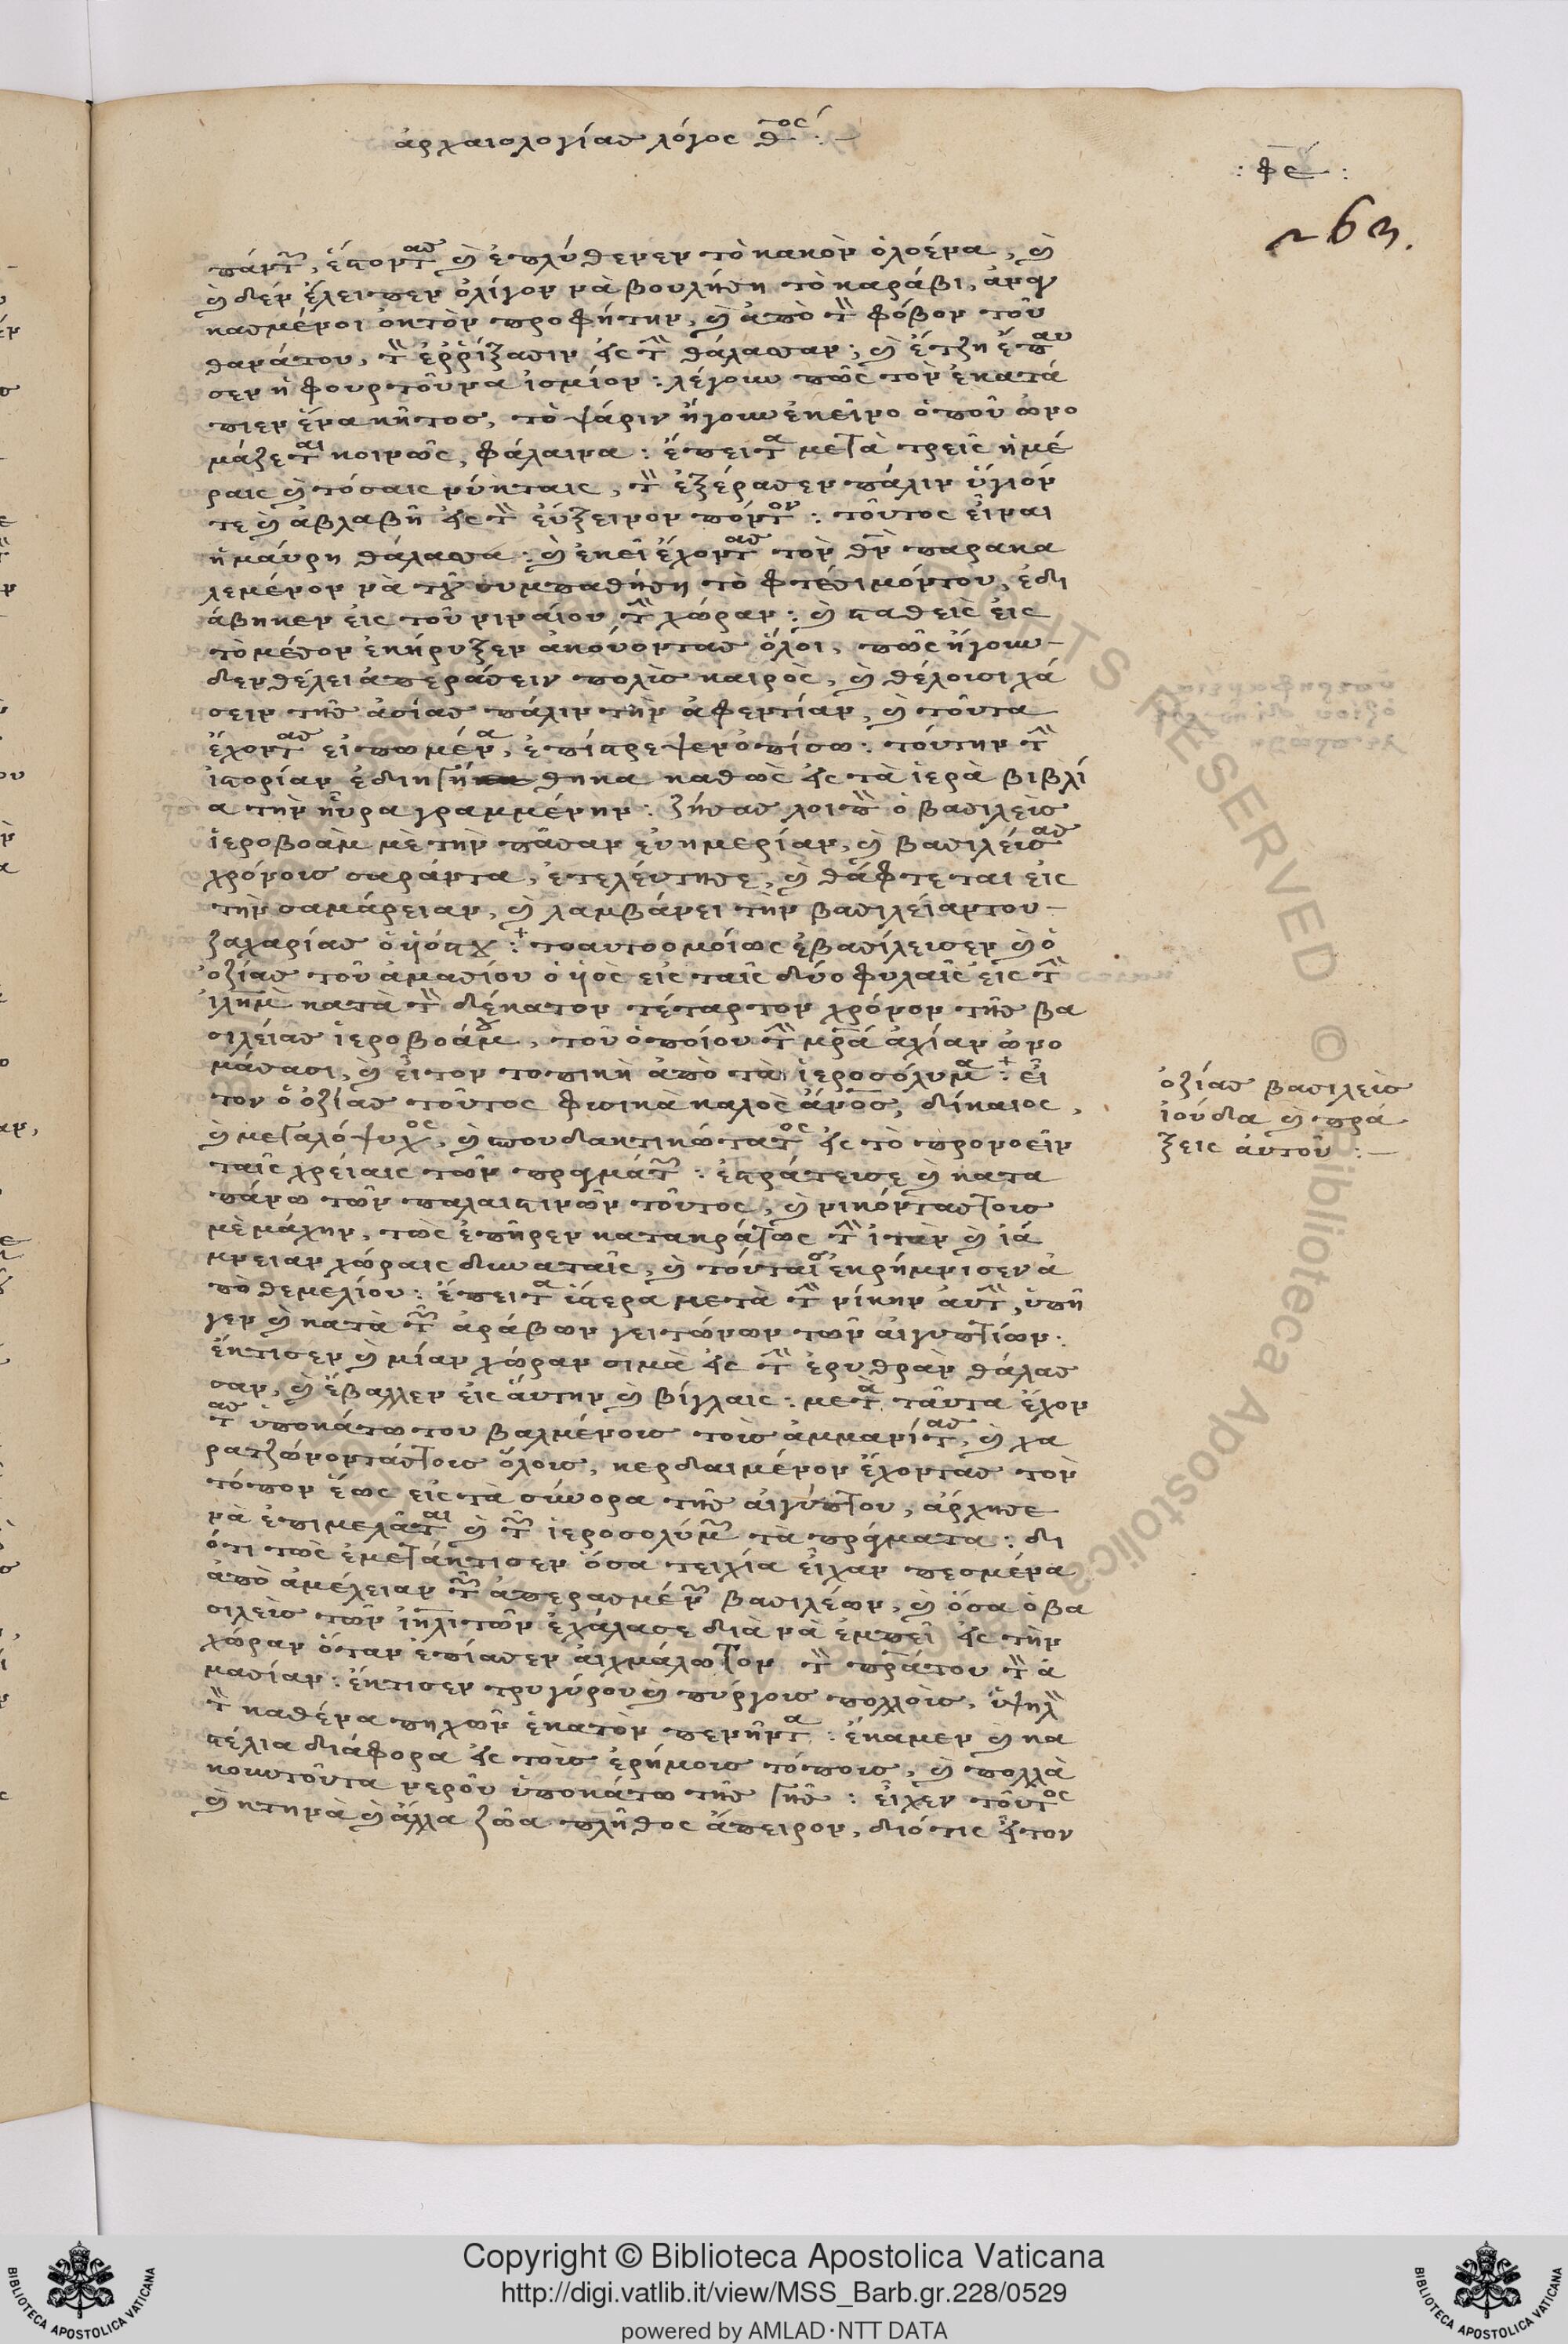 ἀρχαιολογίας λόγος θ^ος :—
: φε :
263.
πάντ, ἔστοντας ϗ ἐπλύθενεν τὸ κακὸν ὁλοένα, ϗ
ϗ δὲν ἔλειπεν ὀλίγον νὰ βουλήση τὸ καράβι, ἀναγ
κασμένοι ὀκτὸν προφήτην, ϗ ἀπὸ τ φόβον τοῦ
θανάτου, τ ἐῤῥίξασιν εἰς τ θάλασσαν; ϗ ἔτζη ἔπαυ
σεν ἡ φουρτοῦνα ἰσμίον: λέγουν πῶς τὸν ἐκατά
πιεν ἕνα κῆτος, τὸ ψάριν ἤγουν ἐκεῖνο ὁποῦ ὠνο
μάζεται κοινῶς, φάλαινα: ἔπειτα μετὰ τρεῖς ἡμέ
ραις ϗ τόσαις νύκταις, τ ἐξέρασεν πάλιν ὕγιόν
τε ϗ ἀβλαβῆ εἰς τ ἐύξεινον πόντον: τοῦτος εἶναι
ἡ μάυρη θάλασσα: ϗ ἐκεῖ ἔχοντας τὸν θν παρακα
λεμένον νὰ τοῦ συμπαθήση τὸ φτέσιμόντου, ἐδι
άβηκεν εἰς τοῦ νιναίου τ χώραν: ϗ σταθεὶς εἰς
τὸ μέσον ἐκήρυξεν ἀκούοντας ὅλοι, πῶς ἤγουν—
δεν θέλει ἀπεράσειν πολὶς καιρὸς, ϗ θέλουσι χά
σειν τῆς ἀσίας πάλιν τὴν ἀφεντίαν, ϗ τοῦτα
ἔχοντας εἰπωμένα, ἐπίστρεψεν ὀπίσω: τούτην τ
ἱστορίαν ἐδιηγήθηκα καθὼς εἰς τὰ ἱερὰ βιβλί
α τὴν ηὗρα γραμμένην: ζήσας λοιπ ὁ βασιλεὶς
ἱεροβοὰμ μὲ τὴν πᾶσαν ἐυημερίαν, ϗ βασιλεύσας
χρόνους σαράντα, ἐτελέυτησε, ϗ θάφτεται εἰς
τὴν σαμάρειαν, ϗ λαμβάνει τὴν βασιλείαντου—
ζαχαρίας ὁ ὑιόςτου: τοαυτοομοίως ἐβασίλεισεν ϗ ὁ
ὀζίας τοῦ ἀμασίου ὁ ὑιὸς εἰς ταῖς δύο φυλαῖς εἰς τ
ἰλημ κατὰ τ δέκατον τέταρτον χρόνον τῆς βα
σιλείας ἱεροβοάμου, τοῦ ὁποίου τ μρα ἀχίαν ὠνο
μάσασι, ϗ εἶτον τοπικὴ ἀπὸ τὰ ἱεροσόλυμα: εἶ
τον ὁ ὀζίας τοῦτος φισικὰ καλὸς ἄνος, δίκαιος,
ϗ μεγαλόψυχος, ϗ σπουδακτικώτατος εἰς τὸ προνοεῖν
ταῖς χρείαις τῶν πραγμάτων: ἐστράτευσε ϗ κατα
πάνω τῶν παλαιστινῶν τοῦτος, ϗ νικόντασ τους
μὲ μάχην, τῶς ἐπῆρεν κατακράτως τ ἰταν ϗ ἰά
μνειαν χώραις δυναταῖς, ϗ τούταις ἐκρήμνισεν ἀ
πὸ θεμελίου: ἔπειτα ὕστερα μετὰ τ νίκην ἀυτ, ὑπῆ
γεν ϗ κατὰ τ ἀράβων γειτώνων τῶν ἀιγυπτίων:
ἔκτισεν ϗ μίαν χώραν σιμὰ εἰς τ ἐρυθρὰν θάλασ
σαν, ϗ ἔβαλλεν εἰς ἄυτην ϗ βίγλαις: μετὰ ταῦτα ἔχον
τας ὑποκάτω του βαλμένους τοὺς ἀμμανίτας, ϗ χα
ρατζώνοντάς τους ὅλους, κερδαιμένον ἔχοντας τὸν
τόπον ἕως εἰς τὰ σύνορα τῆς ἀιγύπτου, ἄρχησε
νὰ ἐπιμελᾶται ϗ τ ἱεροσολύμων τὰ πράγματα: δι
ότι τῶς ἐμετάκτισεν ὅσα τειχία εἶχαν πεσμένα
ἀπὸ ἀμέλειαν τ ἀπερασμένων βασιλέων, ϗ ὅσα ὁ βα
σιλεὶς τῶν ἰηλιτῶν ἐχάλασε διὰ νὰ ἐμπεῖ εἰς τὴν
χώραν ὅταν ἐπίασεν ἀιχμάλωτον τ πρατου τ ἀ
μασίαν: ἔκτισεν τρυγύρου ϗ πύργους πολλοὺς, ὑψηλ
τ καθένα πηχῶν ἑκατὸν πενῆντα: ἔκαμεν ϗ κα
στέλια διάφορα εἰς τοὺς ἐρήμους τόπους, ϗ πολλὰ
κουντοῦντα νεροῦ ὑποκάτω τῆς γῆς: εἶχεν τοῦτος
ϗ κτηνὰ ϗ ἄλλα ζῶα πλῆθος ἄπειρον, διότις ἦτον
ὀζίας βασιλεὶς
ἰούδα ϗ πρά
ξεις ἀυτοῦ :—
Copyright © Biblioteca Apostolica Vaticana
http://digi.vatlib.it/view/MSS_Barb.gr.228/0529
powered by AMLAD·NTT DATA
BIBLIOTECA APOSTOLICA VATICANA
BIBLIOTECA APOSTOLICA VATICANA